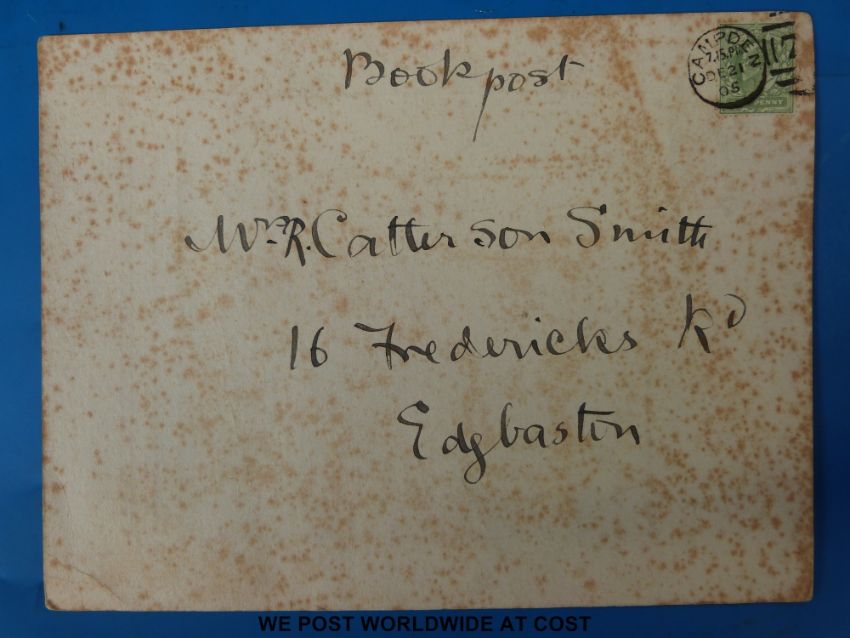 Book post
CAMPDEN
7.15.PM
DE 21
05
PENNY
Mr. R. Catterson Smith
16 Fredericks Rd
Edgbaston
WE POST WORLDWIDE AT COST